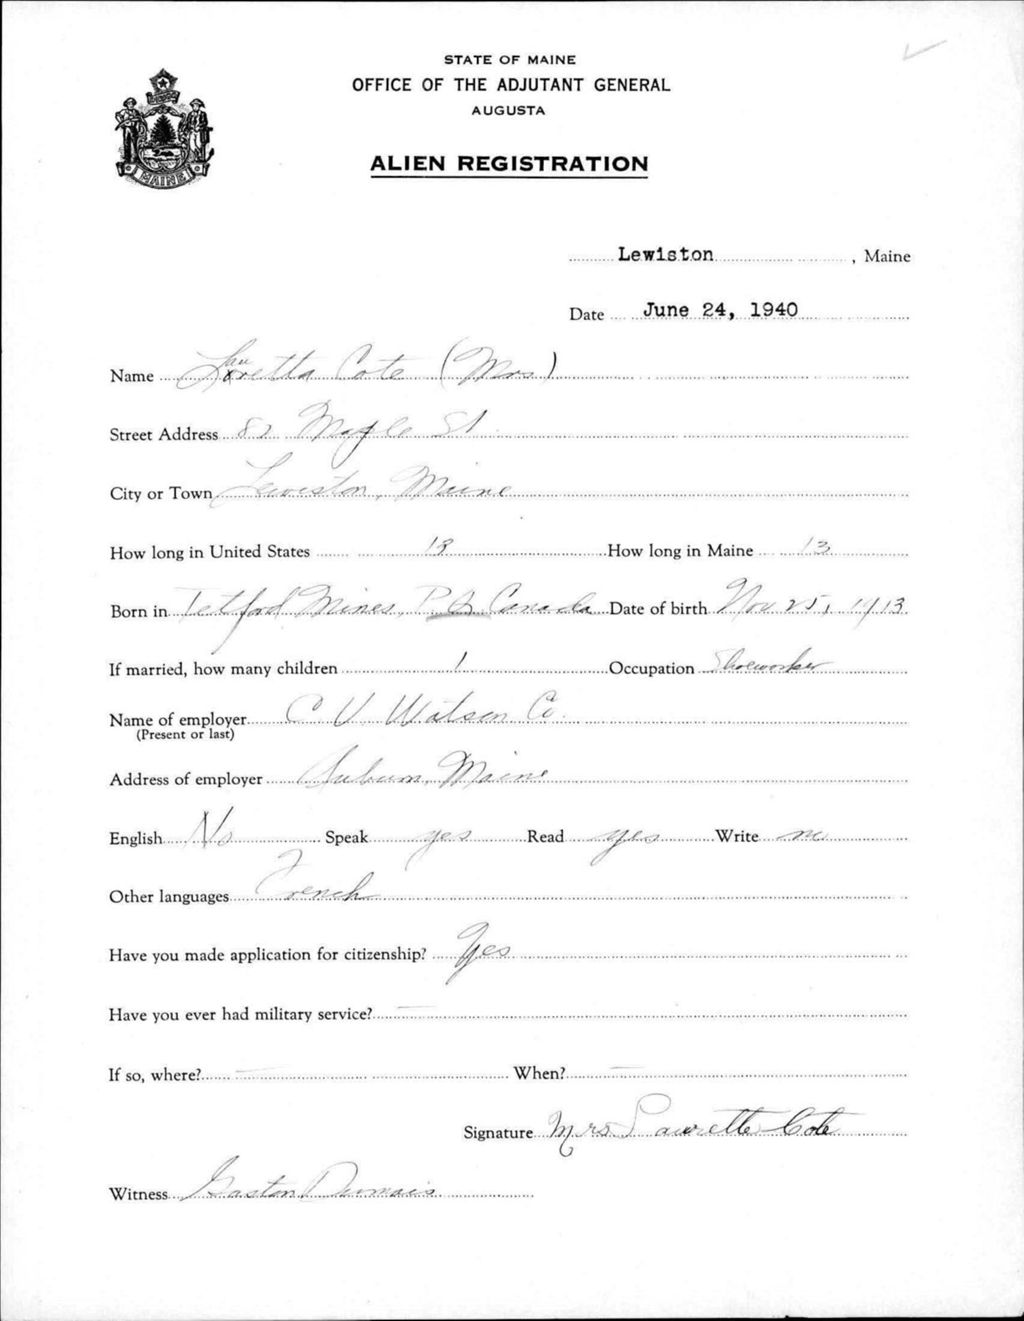 STATE OF MAINE
OFFICE OF THE ADJUTANT GENERAL
AUGUSTA
MAINE
ALIEN REGISTRATION
Lewiston, Maine
Date June 24, 1940
Name Lauretta Cote (Mrs)
Street Address 82 Maple St
City or Town Lewiston, Maine
How long in United States 13 How long in Maine 13
Born in Tetford Mines, P.Q. Canada Date of birth Nov 25, 1913
If married, how many children 1 Occupation Shoeworker
Name of employer C. V. Watson Co.
(Present or last)
Address of employer Auburn, Maine
English No Speak yes Read yes Write no
Other languages French
Have you made application for citizenship? Yes
Have you ever had military service? —
If so, where? — When? —
Signature Mrs Laurette Cote
Witness Gaston Dumais